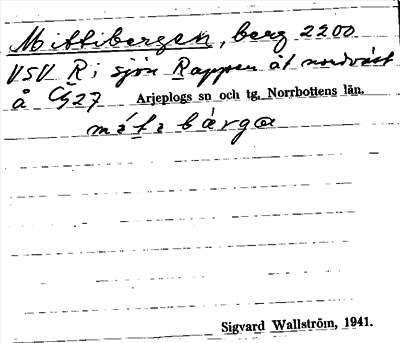 Mittibergen, berg 2200
VSV R i sjön Rappen åt nordväst
å Čg27 Arjeplogs sn och tg, Norrbottens län.
bárga
Sigvard Wallström, 1941.